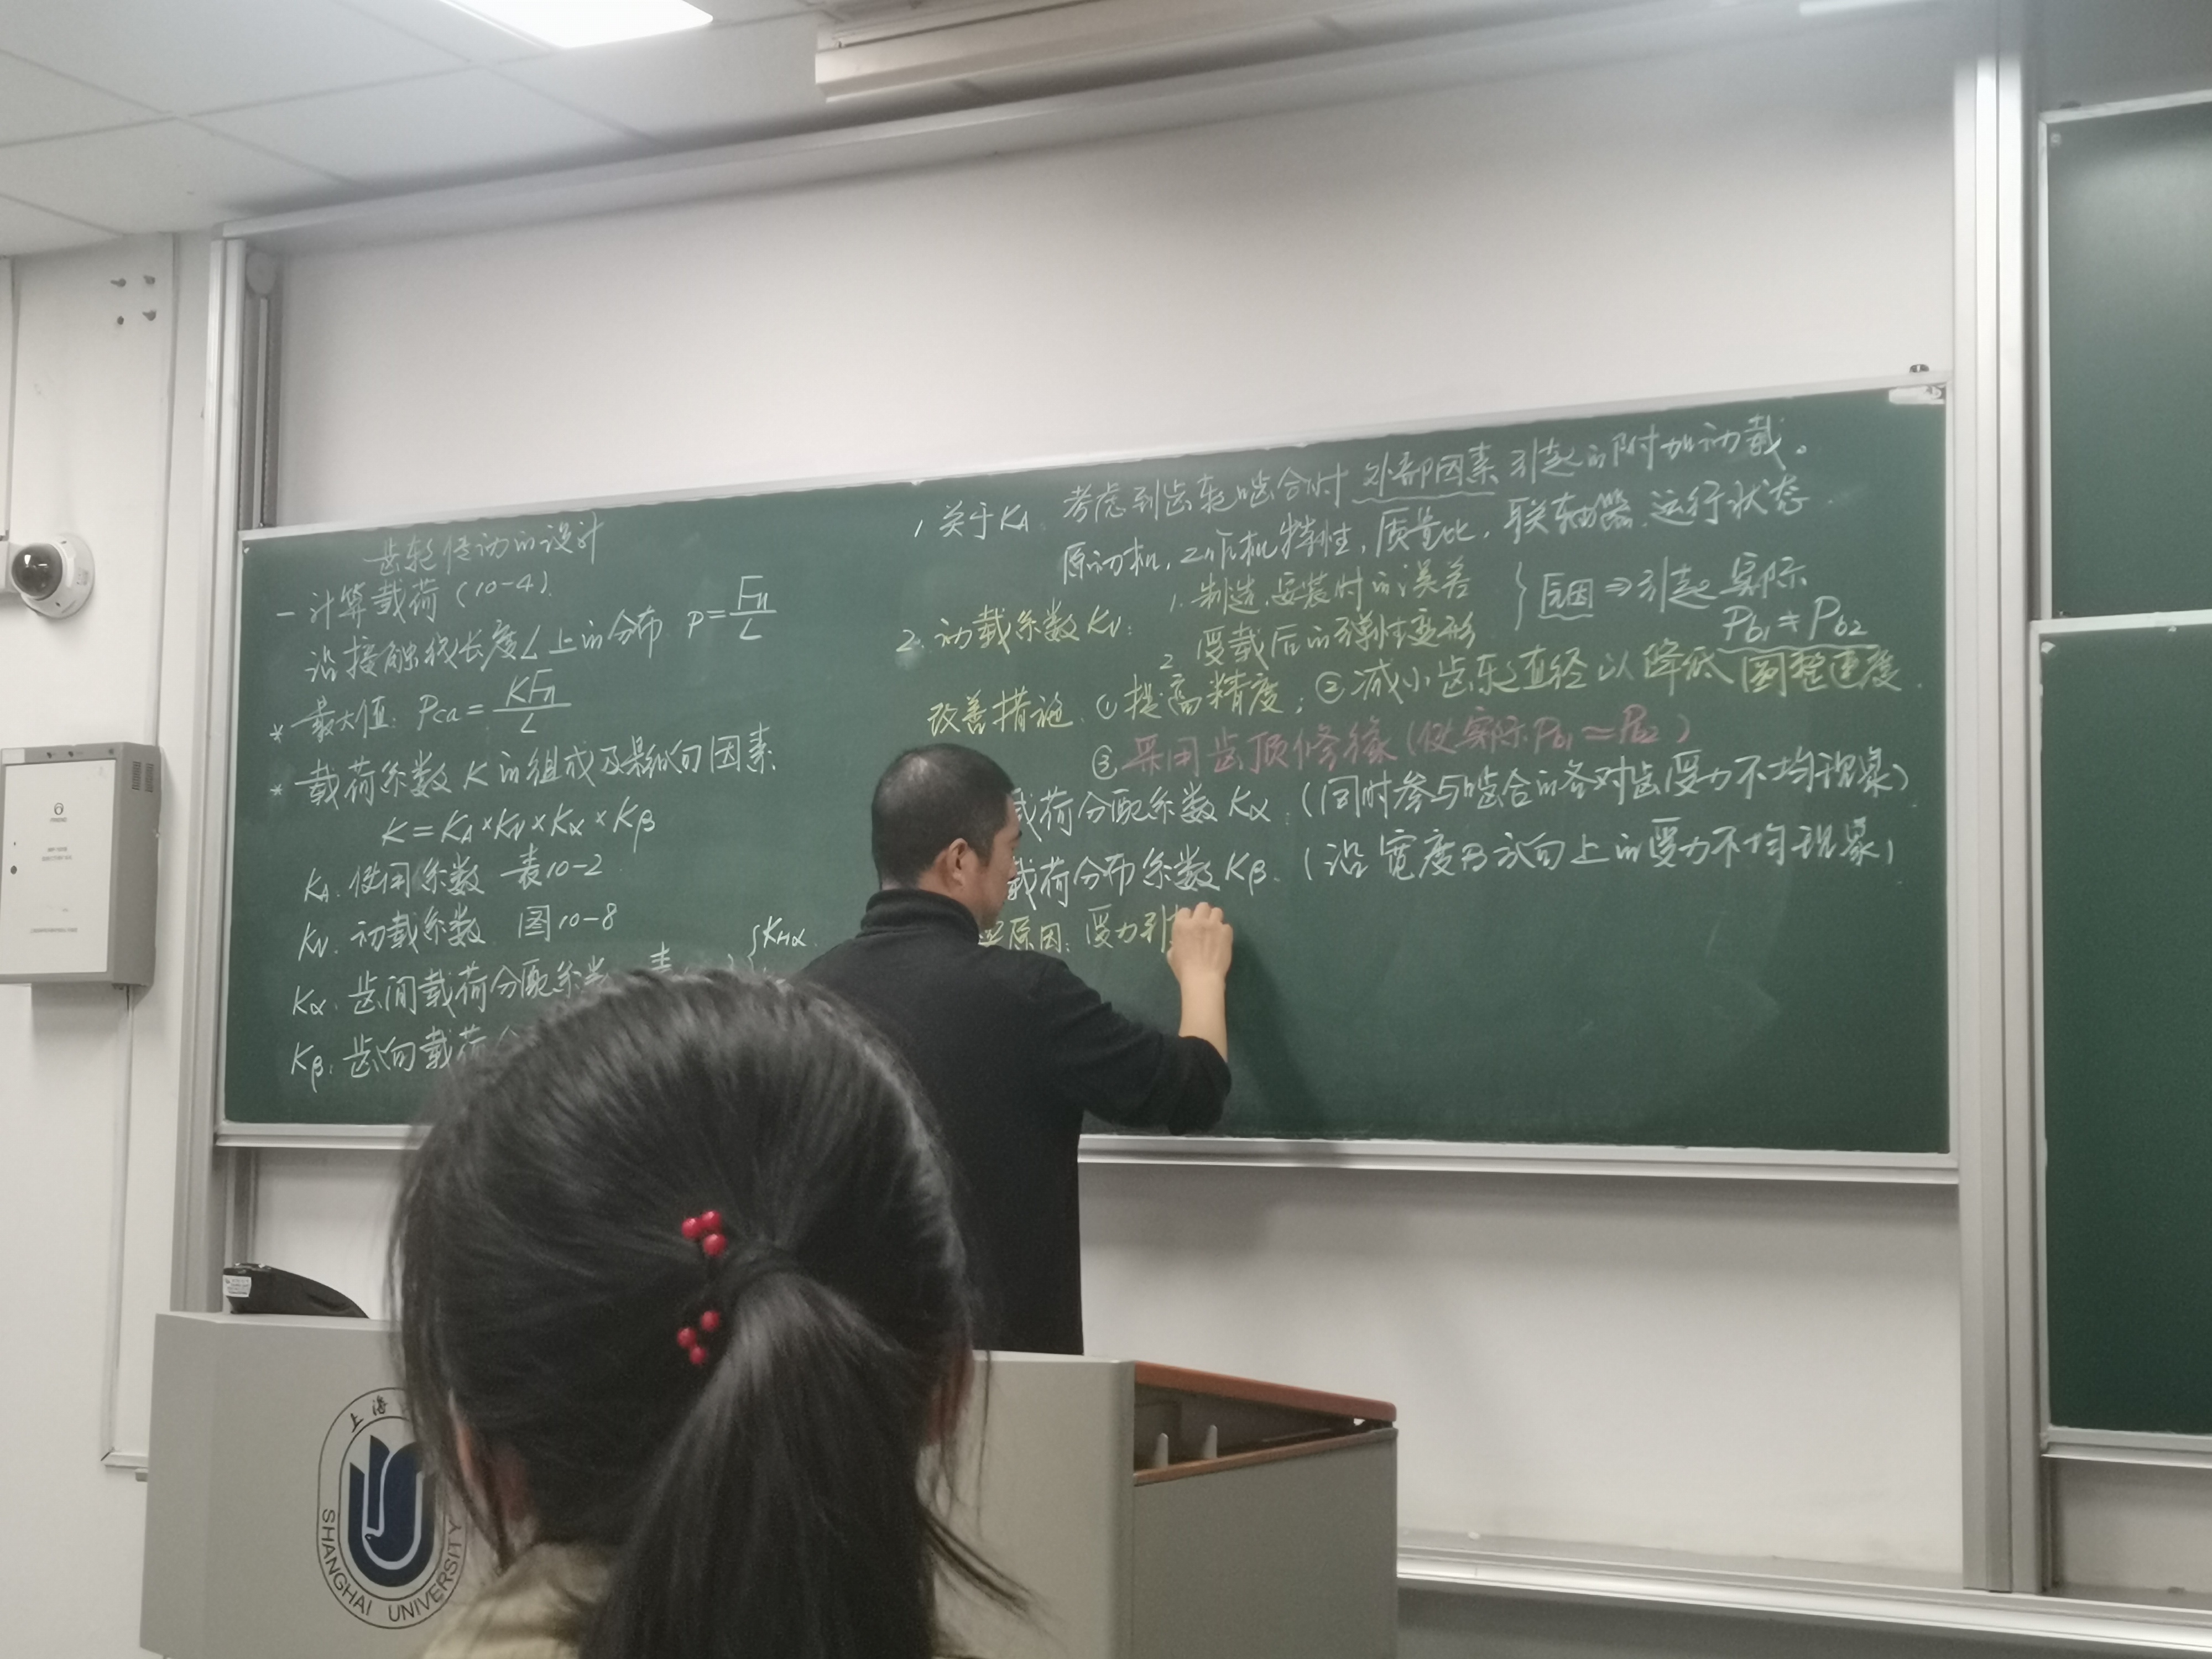 齿轮传动的设计
一 计算载荷 (10-4).
沿接触线长度L上的分布 P=Fn/L
* 最大值: Pca=KFn/L
* 载荷系数K的组成及影响因素
K=KA×KV×Kα×Kβ
KA: 使用系数 表10-2
KV: 动载系数 图10-8
Kα: 齿间载荷分配系数 表 {KHα
Kβ: 齿向载荷分
1. 关于KA: 考虑到齿轮啮合时外部因素引起的附加动载。
原动机, 工作机特性, 质量比, 联轴器, 运行状态
2. 动载系数KV: 1. 制造、安装时的误差
2 受载后的弹性变形
} 原因 ⇒ 引起实际
Pb1≠Pb2
改善措施: ①提高精度; ②减小齿轮直径以降低圆整速度.
③采用齿顶修缘 (使实际Pb1≈Pb2)
载荷分配系数Kα: (同时参与啮合的各对齿受力不均现象)
载荷分布系数Kβ: (沿宽度B方向上的受力不均现象)
原因: 受力引
上海
SHANGHAI UNIVERSITY